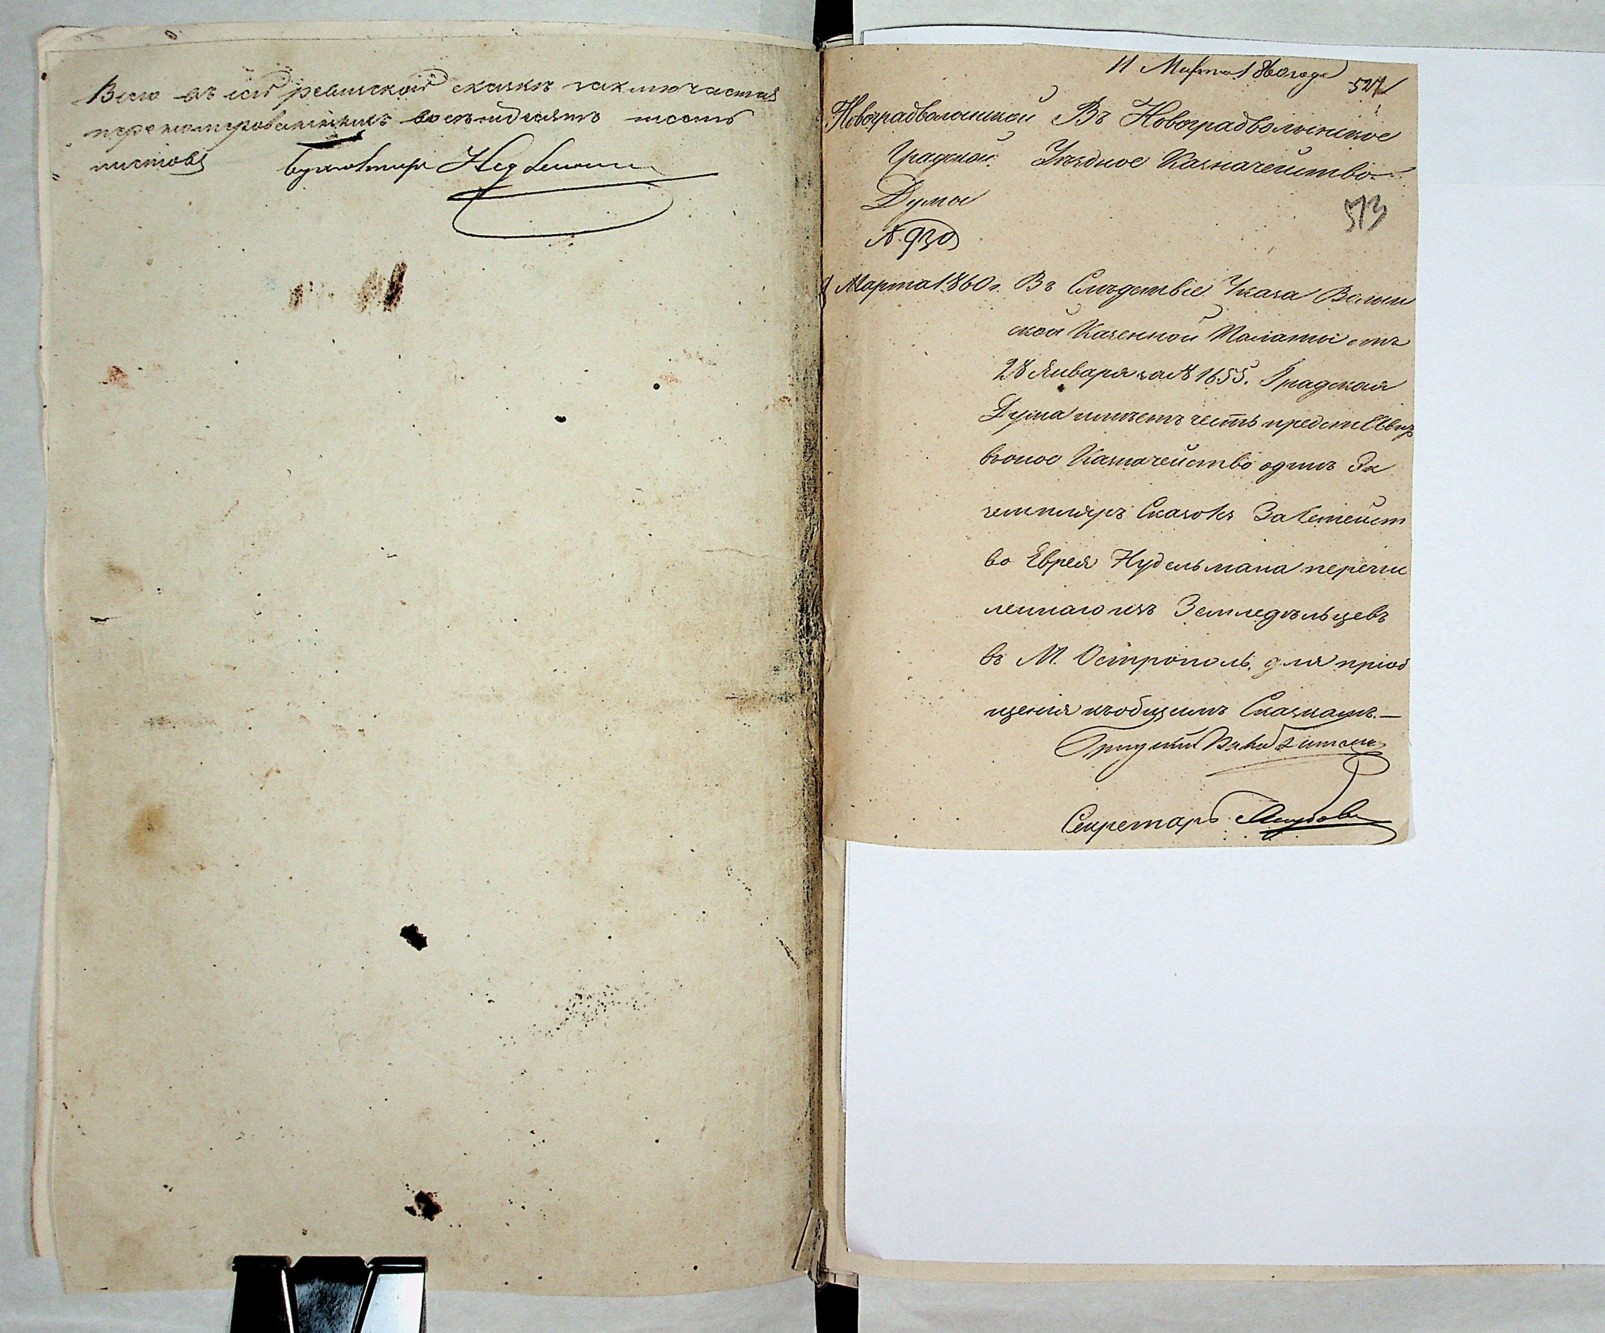 Всего въ сей ревизской сказкѣ заключается
перенумерованныхъ восемьдесятъ шесть
листовъ
Бухгалтеръ
11 Марта 1860 года
527
Новоградволынской
Градской
Думы
№ 930
Марта 1860 г.
Въ Новоградволынское
Уѣздное Казначейство
513
Въ Слѣдствіе Указа Волын
ской Казенной Палаты отъ
28 Января за № 1655. Градская
Дума имѣетъ честь представить
въ оное Казначейство одинъ Эк
земпляръ Сказокъ За Семейст
во Еврея Нудельмана перечис
леннаго изъ Земледѣльцевъ
въ М. Острополь, для пріоб
щенія къ общимъ Сказкамъ.—
Секретарь